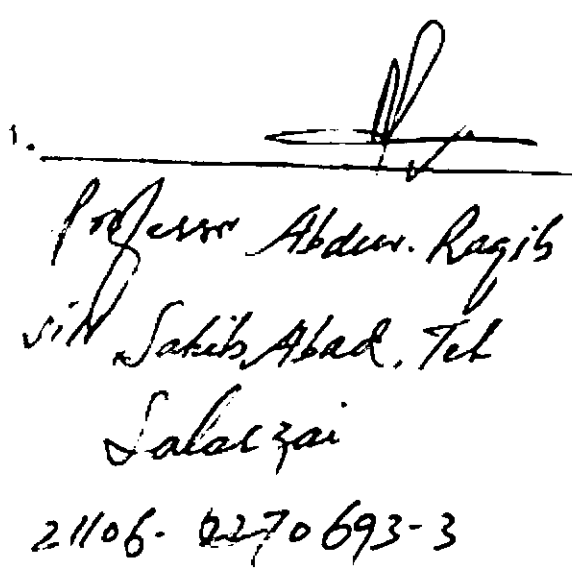 1.
Professor Abdur. Raqib
vill Sahib Abad. Teh
Salarzai
21106-0270693-3